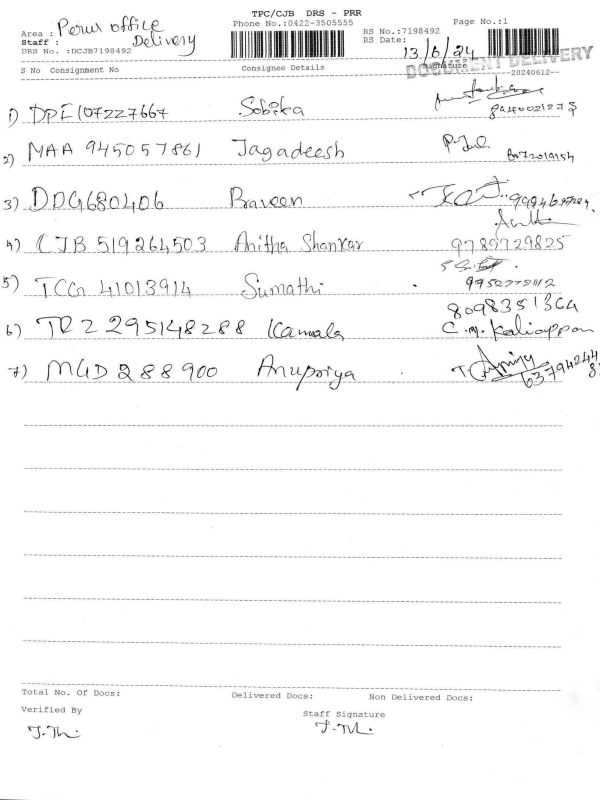 TPC/CJB DRS - PRR
Phone No.:0422-3505555
Page No.:1
Area : Perur office
Staff : Delivery
DRS No. :DCJB7198492
RS No.:7198492
RS Date: 13/6/24
DOCUMENT DELIVERY
S No Consignment No Consignee Details Signature --20240612--
1) DPE107227667 Sobika
2) MAA 945057861 Jagadeesh
3) DDG680406 Praveen
4) CJB 519264503 Anitha Shankar 9789729825
5) TCG 41013914 Sumathi
8098351364
6) TRZ 295148288 Kamala C.M. Kaliappan
7) MGD 288900 Anupriya
Total No. Of Docs: Delivered Docs: Non Delivered Docs:
Verified By Staff Signature